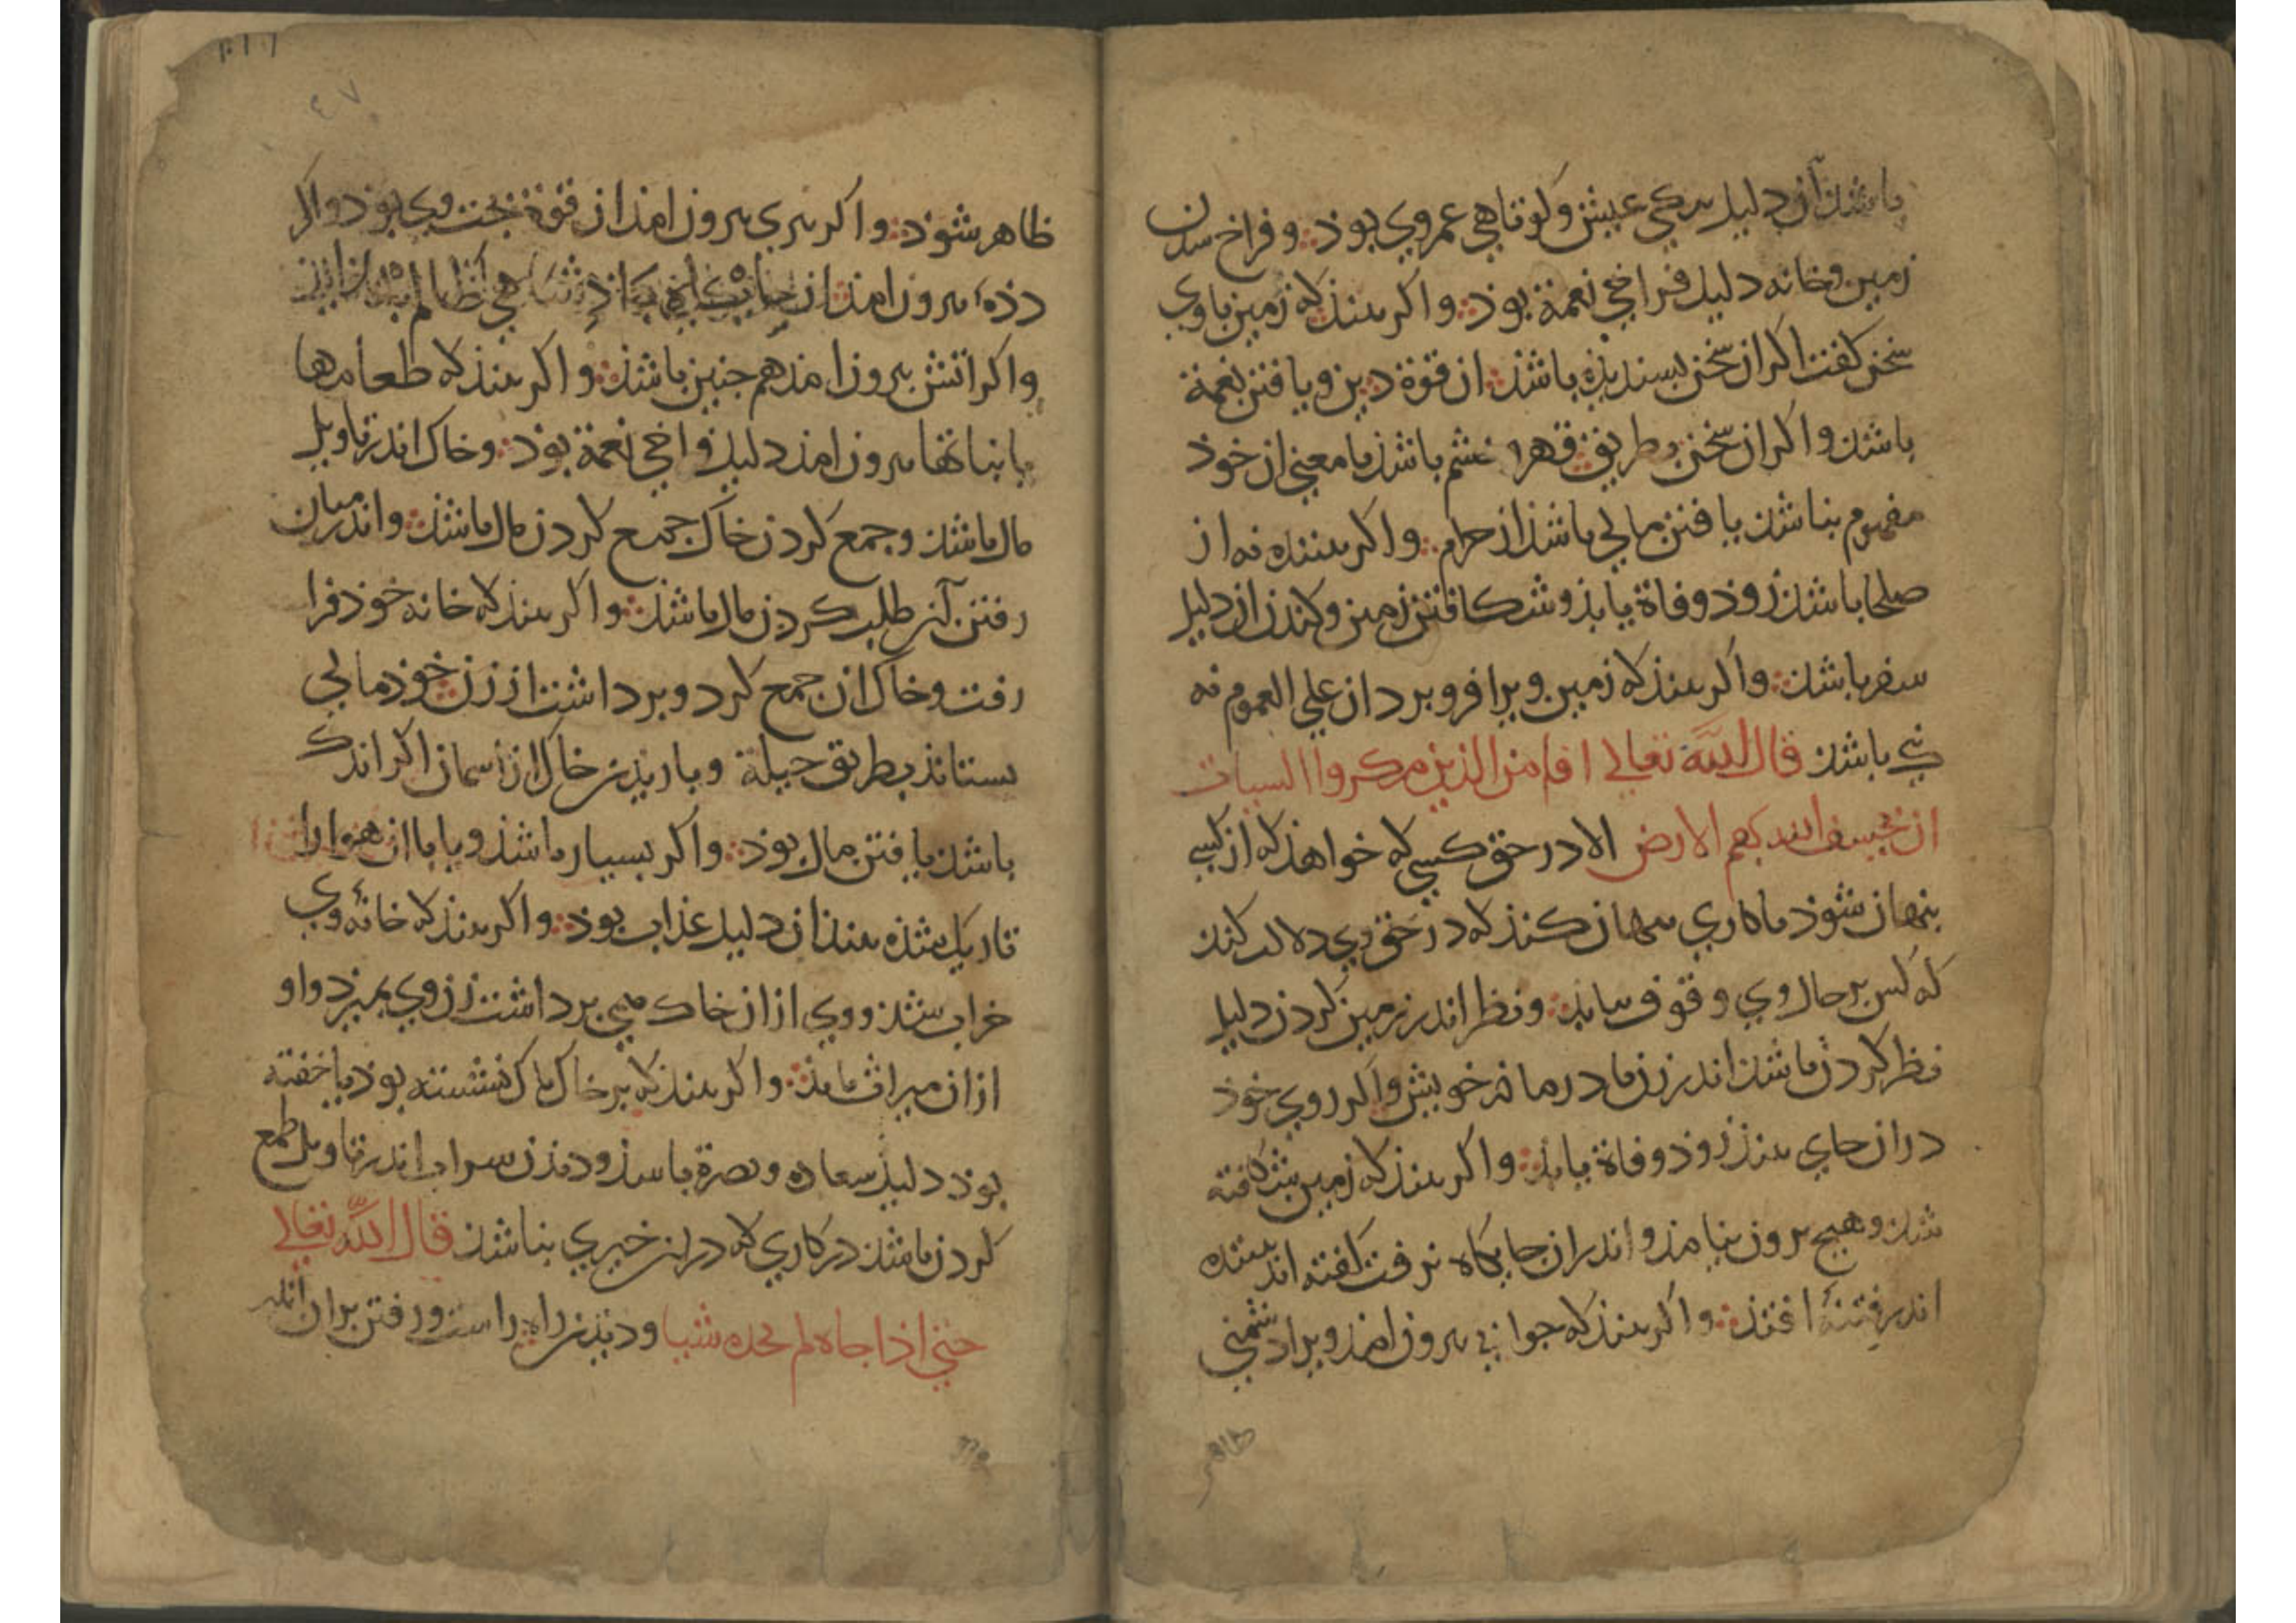 باشد آن دلیل تنکی عیش وکوتاهی عمر وی بوذ وفراخ شدن
زمین وخانه دلیل فراخی نعمة بوذ واکر بینذ که زمین باوی
سخن کفت اکر ان سخن بسندیذه باشذ ان قوة دین ویافتن نعمة
باشذ واکر ان سخن بطریق قهر و خشم باشذ یا معنی ان خوذ
مفهوم نباشذ یافتن مالی باشذ از حرام واکر بیننده نه از
صلحا باشذ زوذ وفاة یابذ وشکافتن زمین وکندن ان دلیل
سفر باشذ واکر بینذ که زمین ویرا فرو برد ان علی العموم نه
نیک باشذ قال الله تعالی افامن الذین مکروا السیات
ان یخسف الله بهم الارض الا در حق کسی که خواهذ که از کسی
بنهان شوذ یا کاری بنهان کنذ که در حق وی دلالت کنذ
که کس بر حال وی وقوف نیابذ ونظر اندر زمین کردن دلیل
نظر کردن باشذ اندر زن یا در مادر خویش واکر روی خوذ
در ان جای بینذ زوذ وفاة یابذ واکر بینذ که زمین شکافته
شذ وهیچ برون نیامذ واندران جایکاه نرفت کفته اند بیننده
اندر فتنهٔ افتذ واکر بینذ که جوانی برون امذ ویرا دشمنی
ظاهر
ظاهر شوذ واکر بیری برون امذ از قوة بخت وی بوذ واکر
دذهٔ برون امذ از جایکاهی باذشاهی ظالم
واکر اتش برون امذ هم جنین باشذ واکر بینذ که طعامها
یا نباتها برون امذ دلیل فراخی نعمة بوذ وخاک اندر تاویل
مال باشذ وجمع کردن خاک جمع کردن مال باشذ واندر میان
رفتن آن طلب کردن مال باشذ واکر بینذ که خانه خوذ فرا
رفت وخاک ان جمع کرد وبرداشت از زن خوذ مالی
بستاند بطریق حیلة وباریذن خاک از اسمان اکر اندک
باشذ یافتن مال بوذ واکر بسیار باشذ ویا با ان هوا را
تاریک شذه بینذ ان دلیل عذاب بوذ واکر بینذ که خانهٔ وی
خراب شذ ووی از ان خاک می برداشت زن وی بمیرد واو
از ان میراث یابذ واکر بینذ که بر خاک باک نشسته بوذ یا خفته
بوذ دلیل سعادة ونصرة باشذ ودیذن سراب اندر تاویل طمع
کردن باشذ در کاری که در ان خیری نباشذ قال الله تعالی
حتی اذا جاه لم یجده شیا ودیذن راه راست ورفتن بران اندر